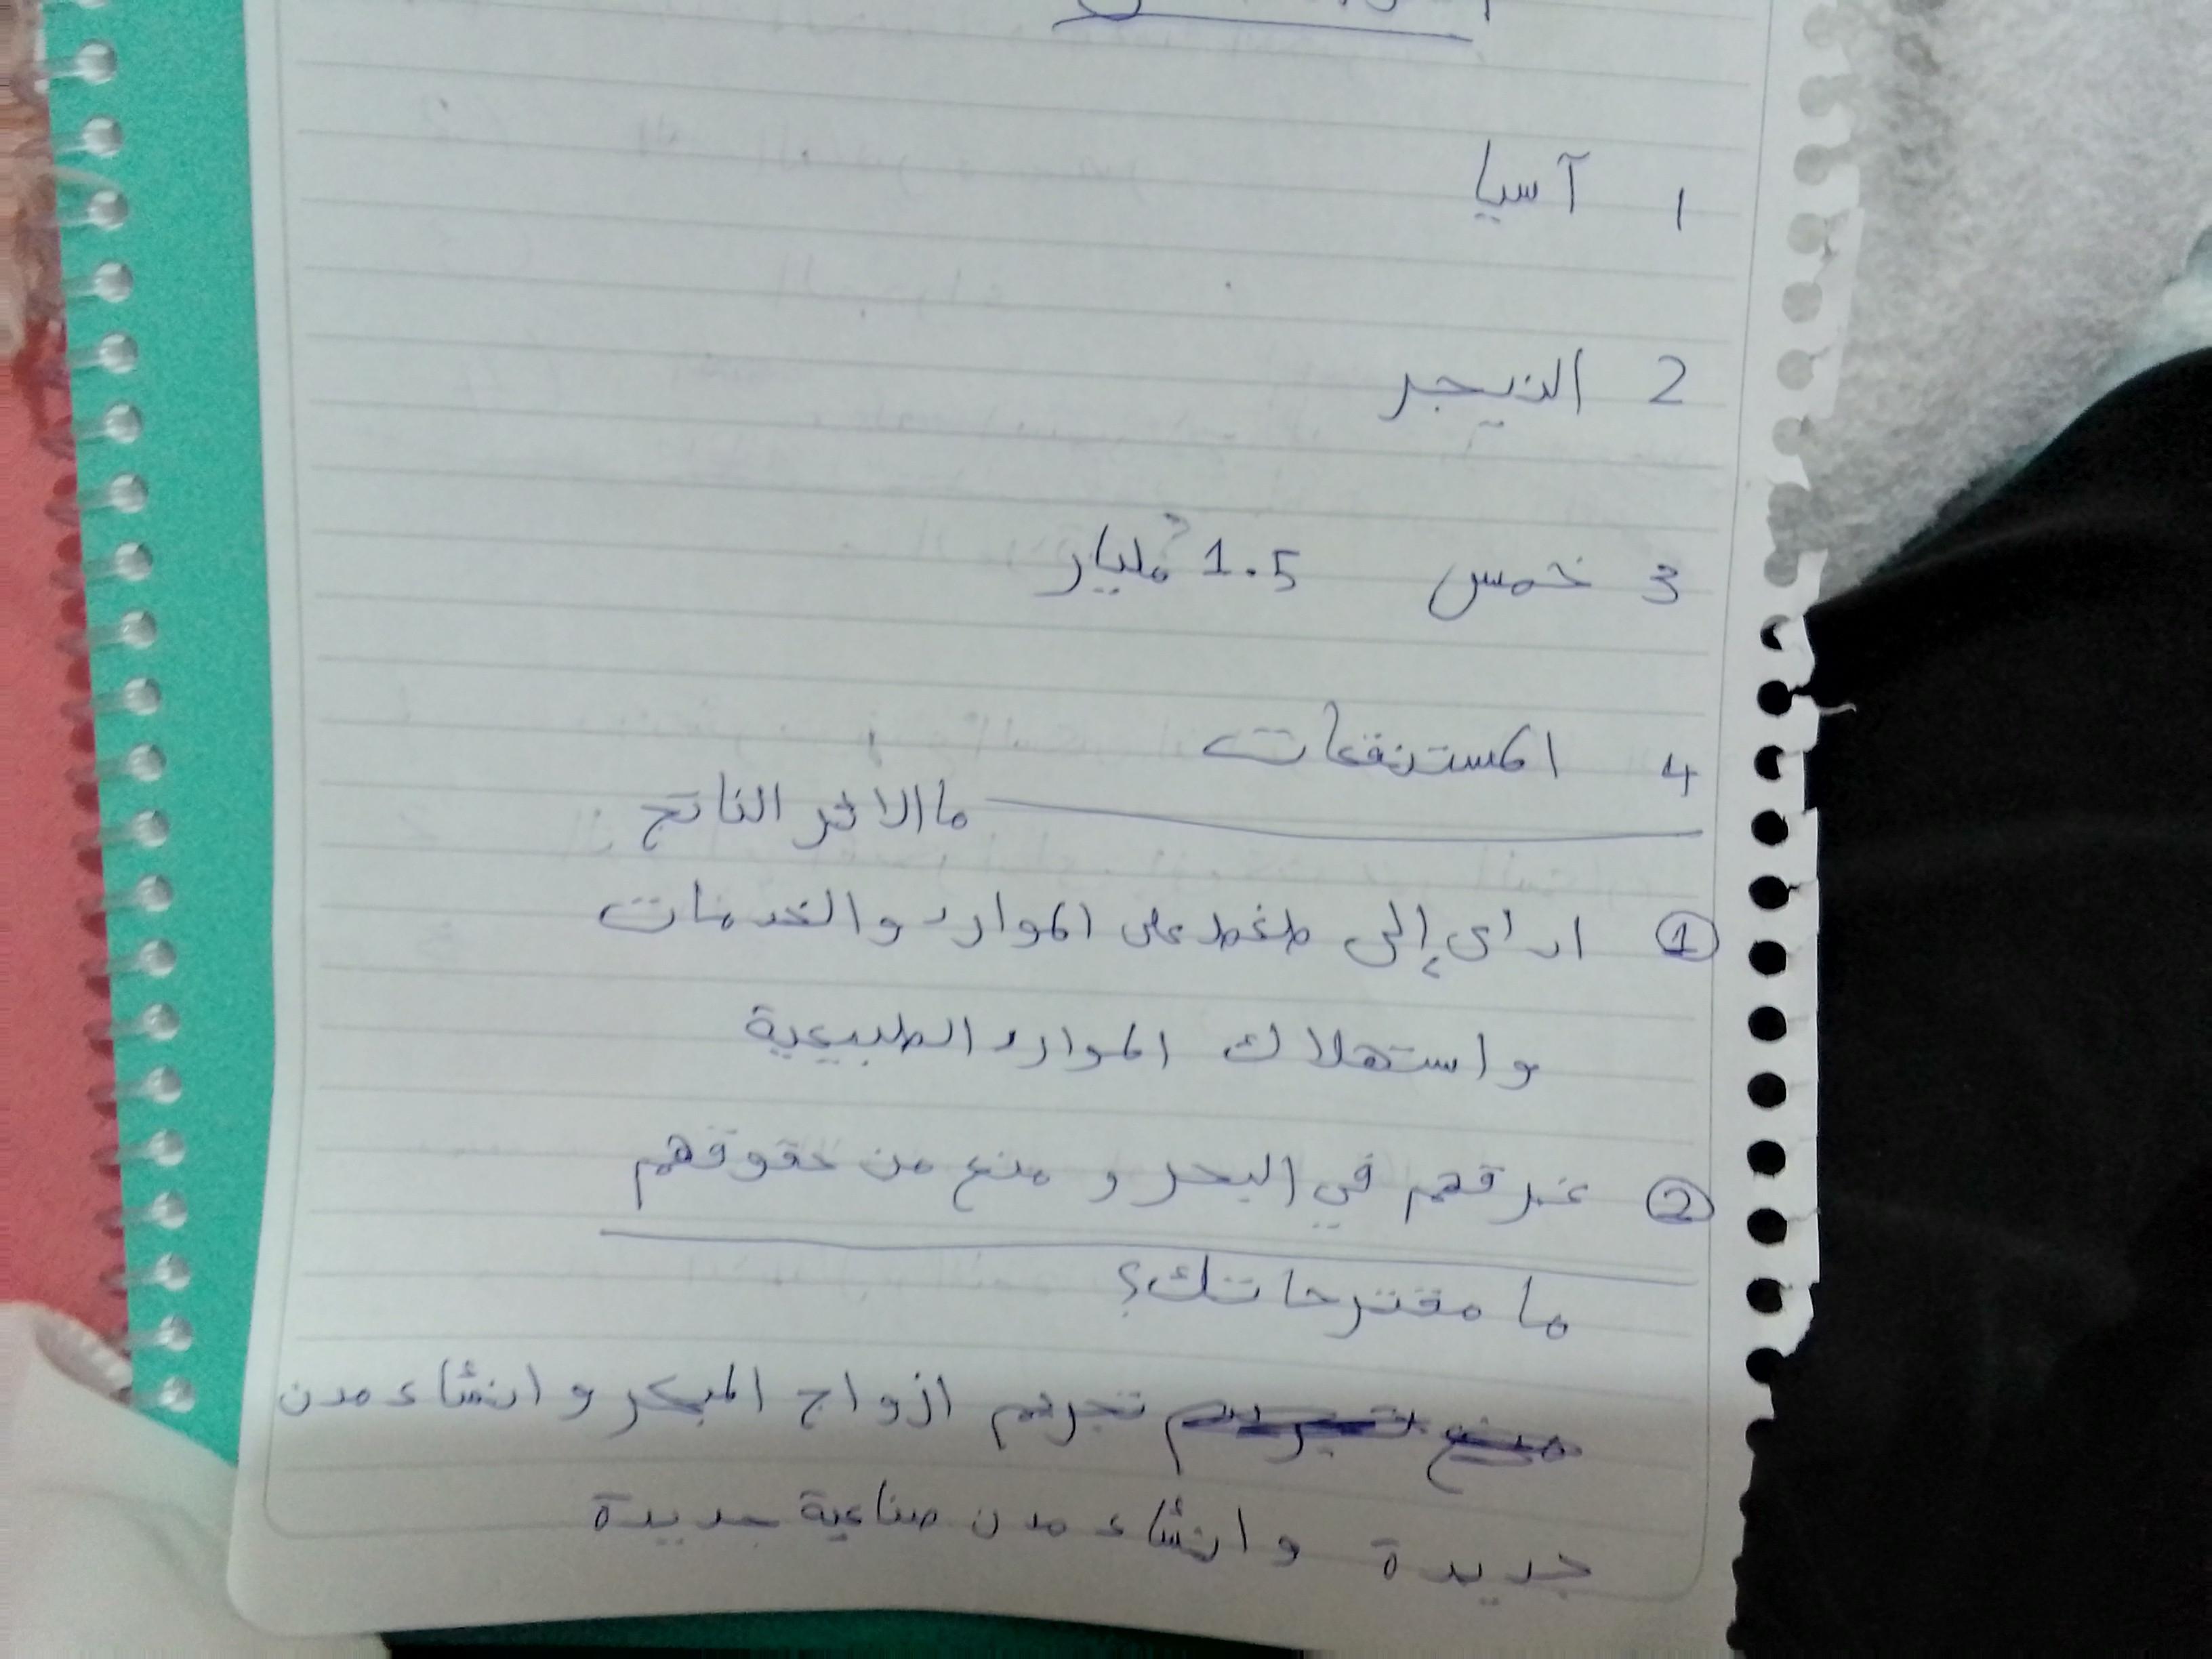 1 آسيا
2 النيجر
3 خمس 1.5 مليار
4 المستنقعات
ما الاثر الناتج
① اداى إلى ضغط على الموارد والخدمات
واستهلاك الموارد الطبيعية
② غرقهم في البحر و منع من حقوقهم
ما مقترحاتك؟
تجريم ازواج المبكر وانشاء مدن
جديدة وانشاء مدن صناعية جديدة